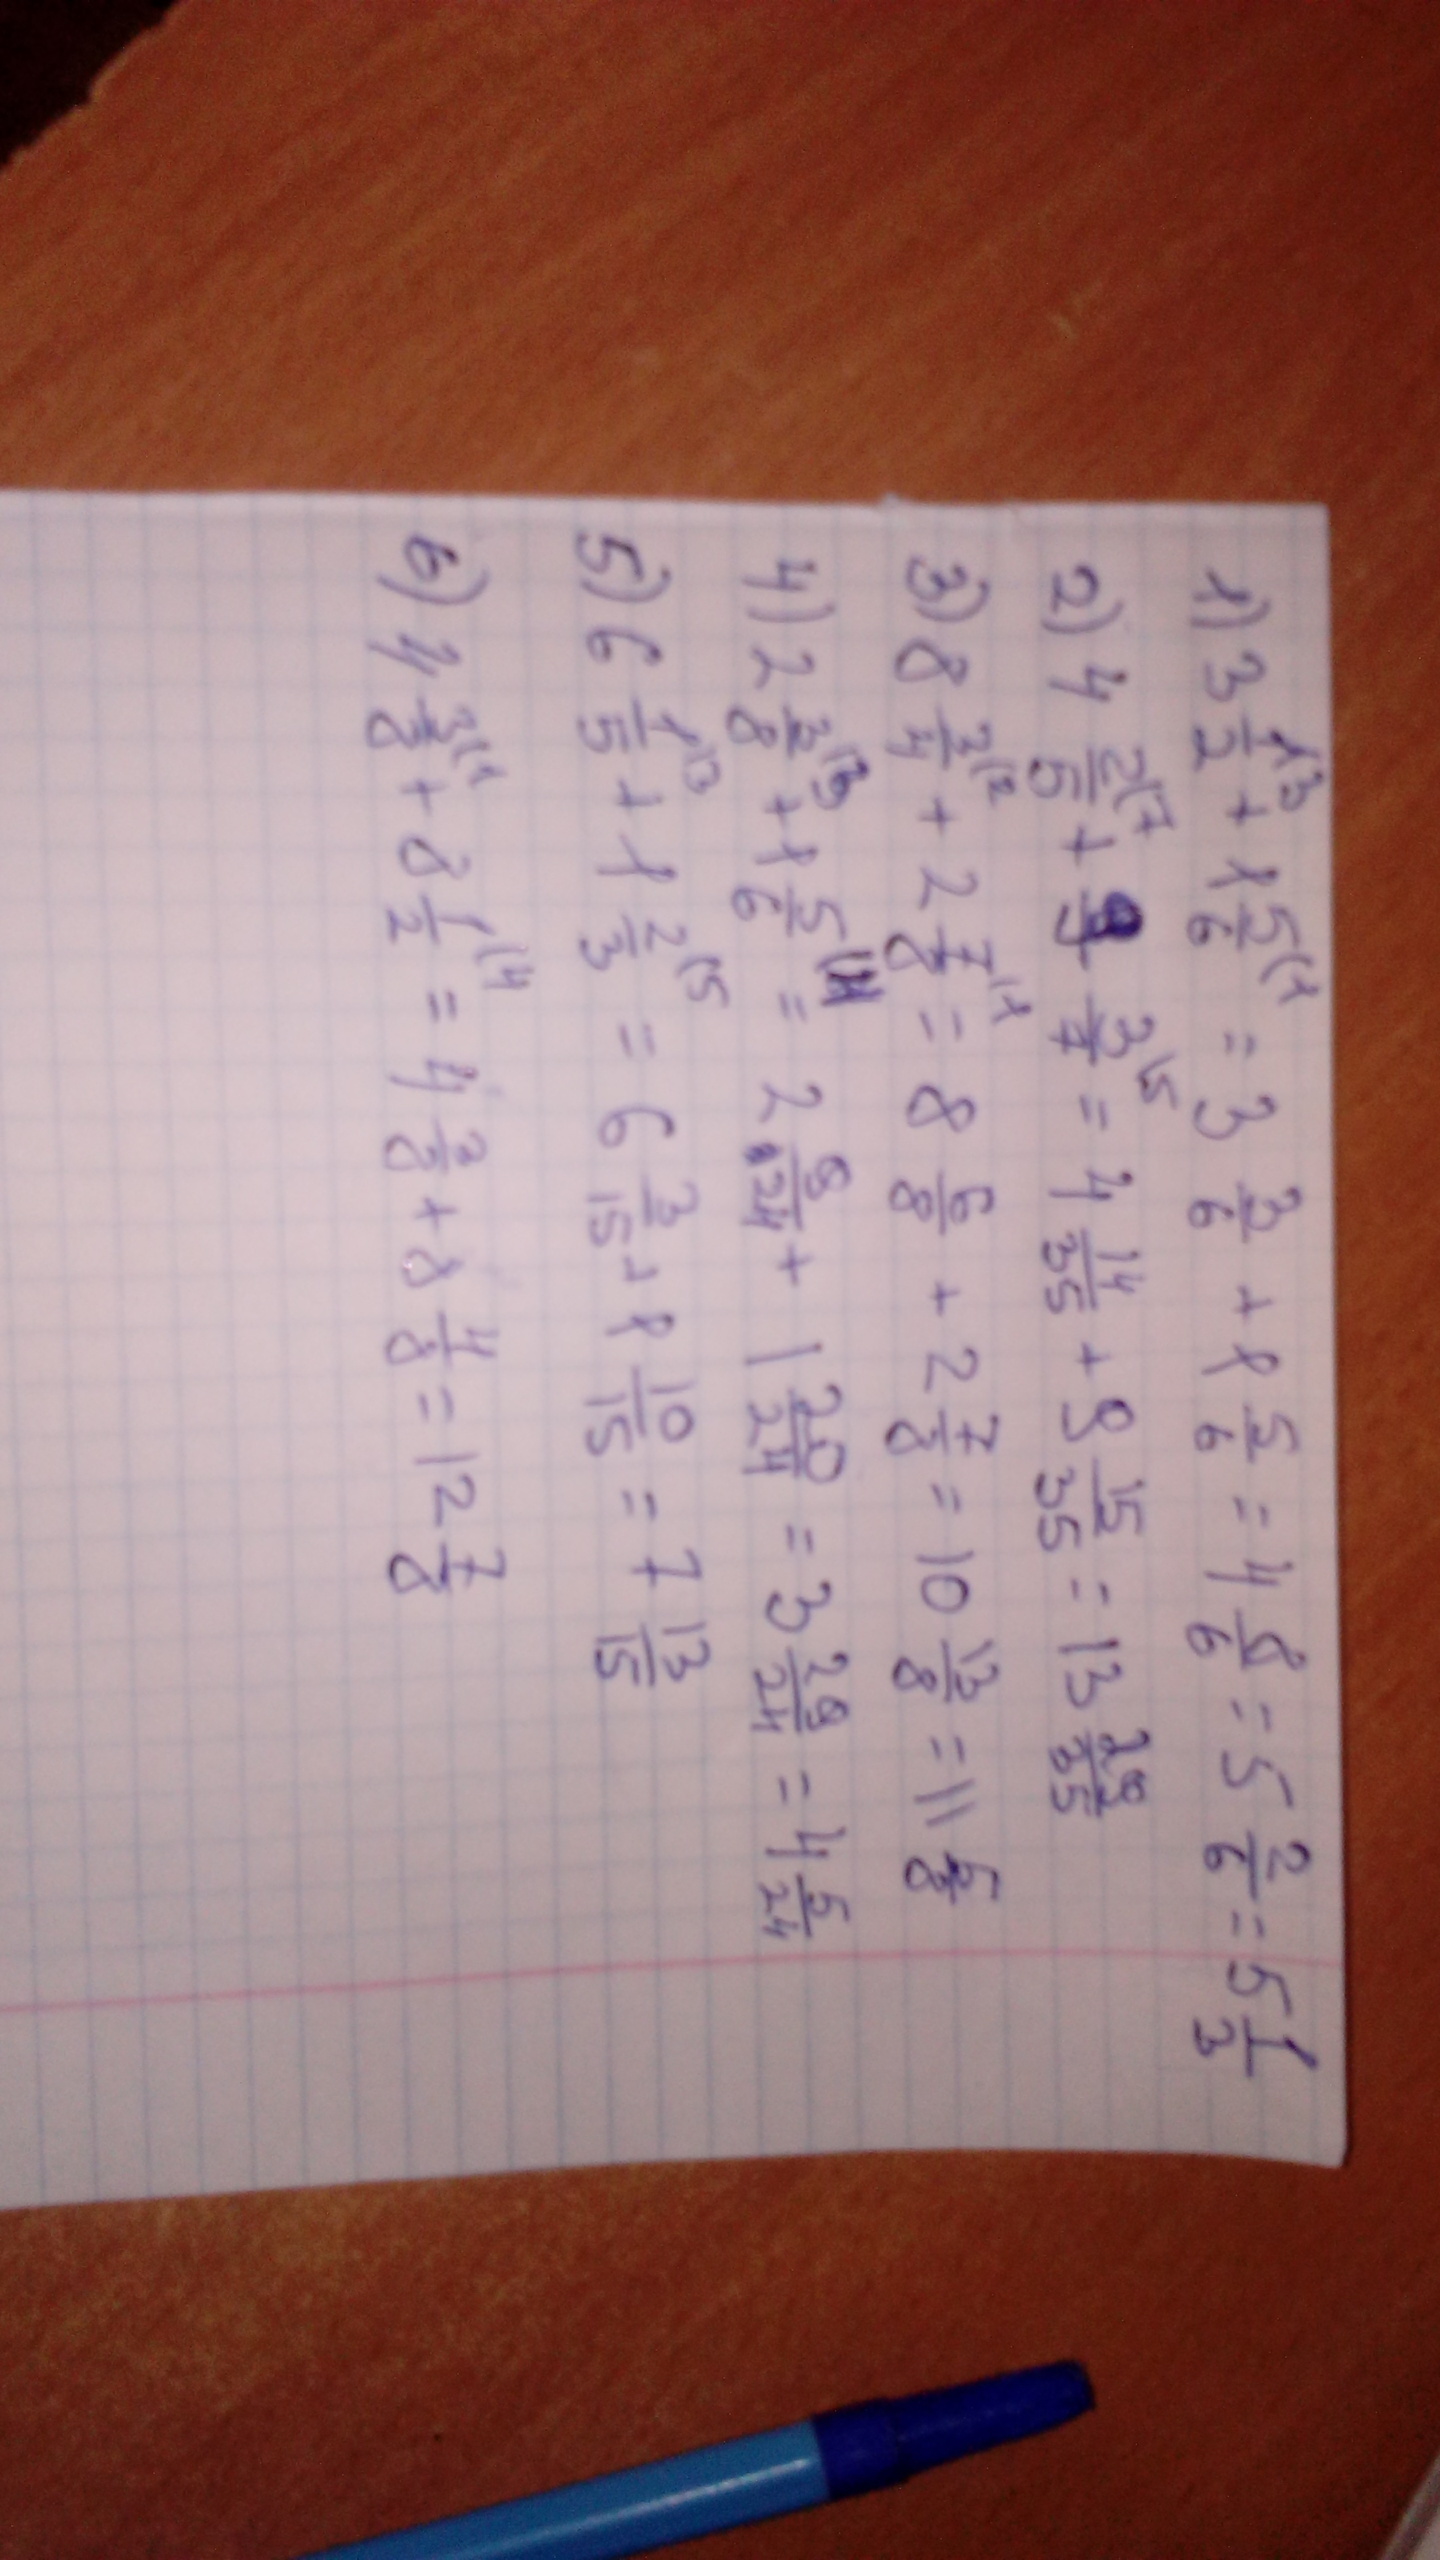 1) 3 1/2 |3 + 1 5/6 |1 = 3 3/6 + 1 5/6 = 4 8/6 = 5 2/6 = 5 1/3
2) 4 2/5 |7 + 9 3/7 |5 = 4 14/35 + 9 15/35 = 13 29/35
3) 8 3/4 |2 + 2 7/8 |1 = 8 6/8 + 2 7/8 = 10 13/8 = 11 5/8
4) 2 3/8 |3 + 1 5/6 |4 = 2 9/24 + 1 20/24 = 3 29/24 = 4 5/24
5) 6 1/5 |3 + 1 2/3 |5 = 6 3/15 + 1 10/15 = 7 13/15
6) 4 3/8 |1 + 8 1/2 |4 = 4 3/8 + 8 4/8 = 12 7/8